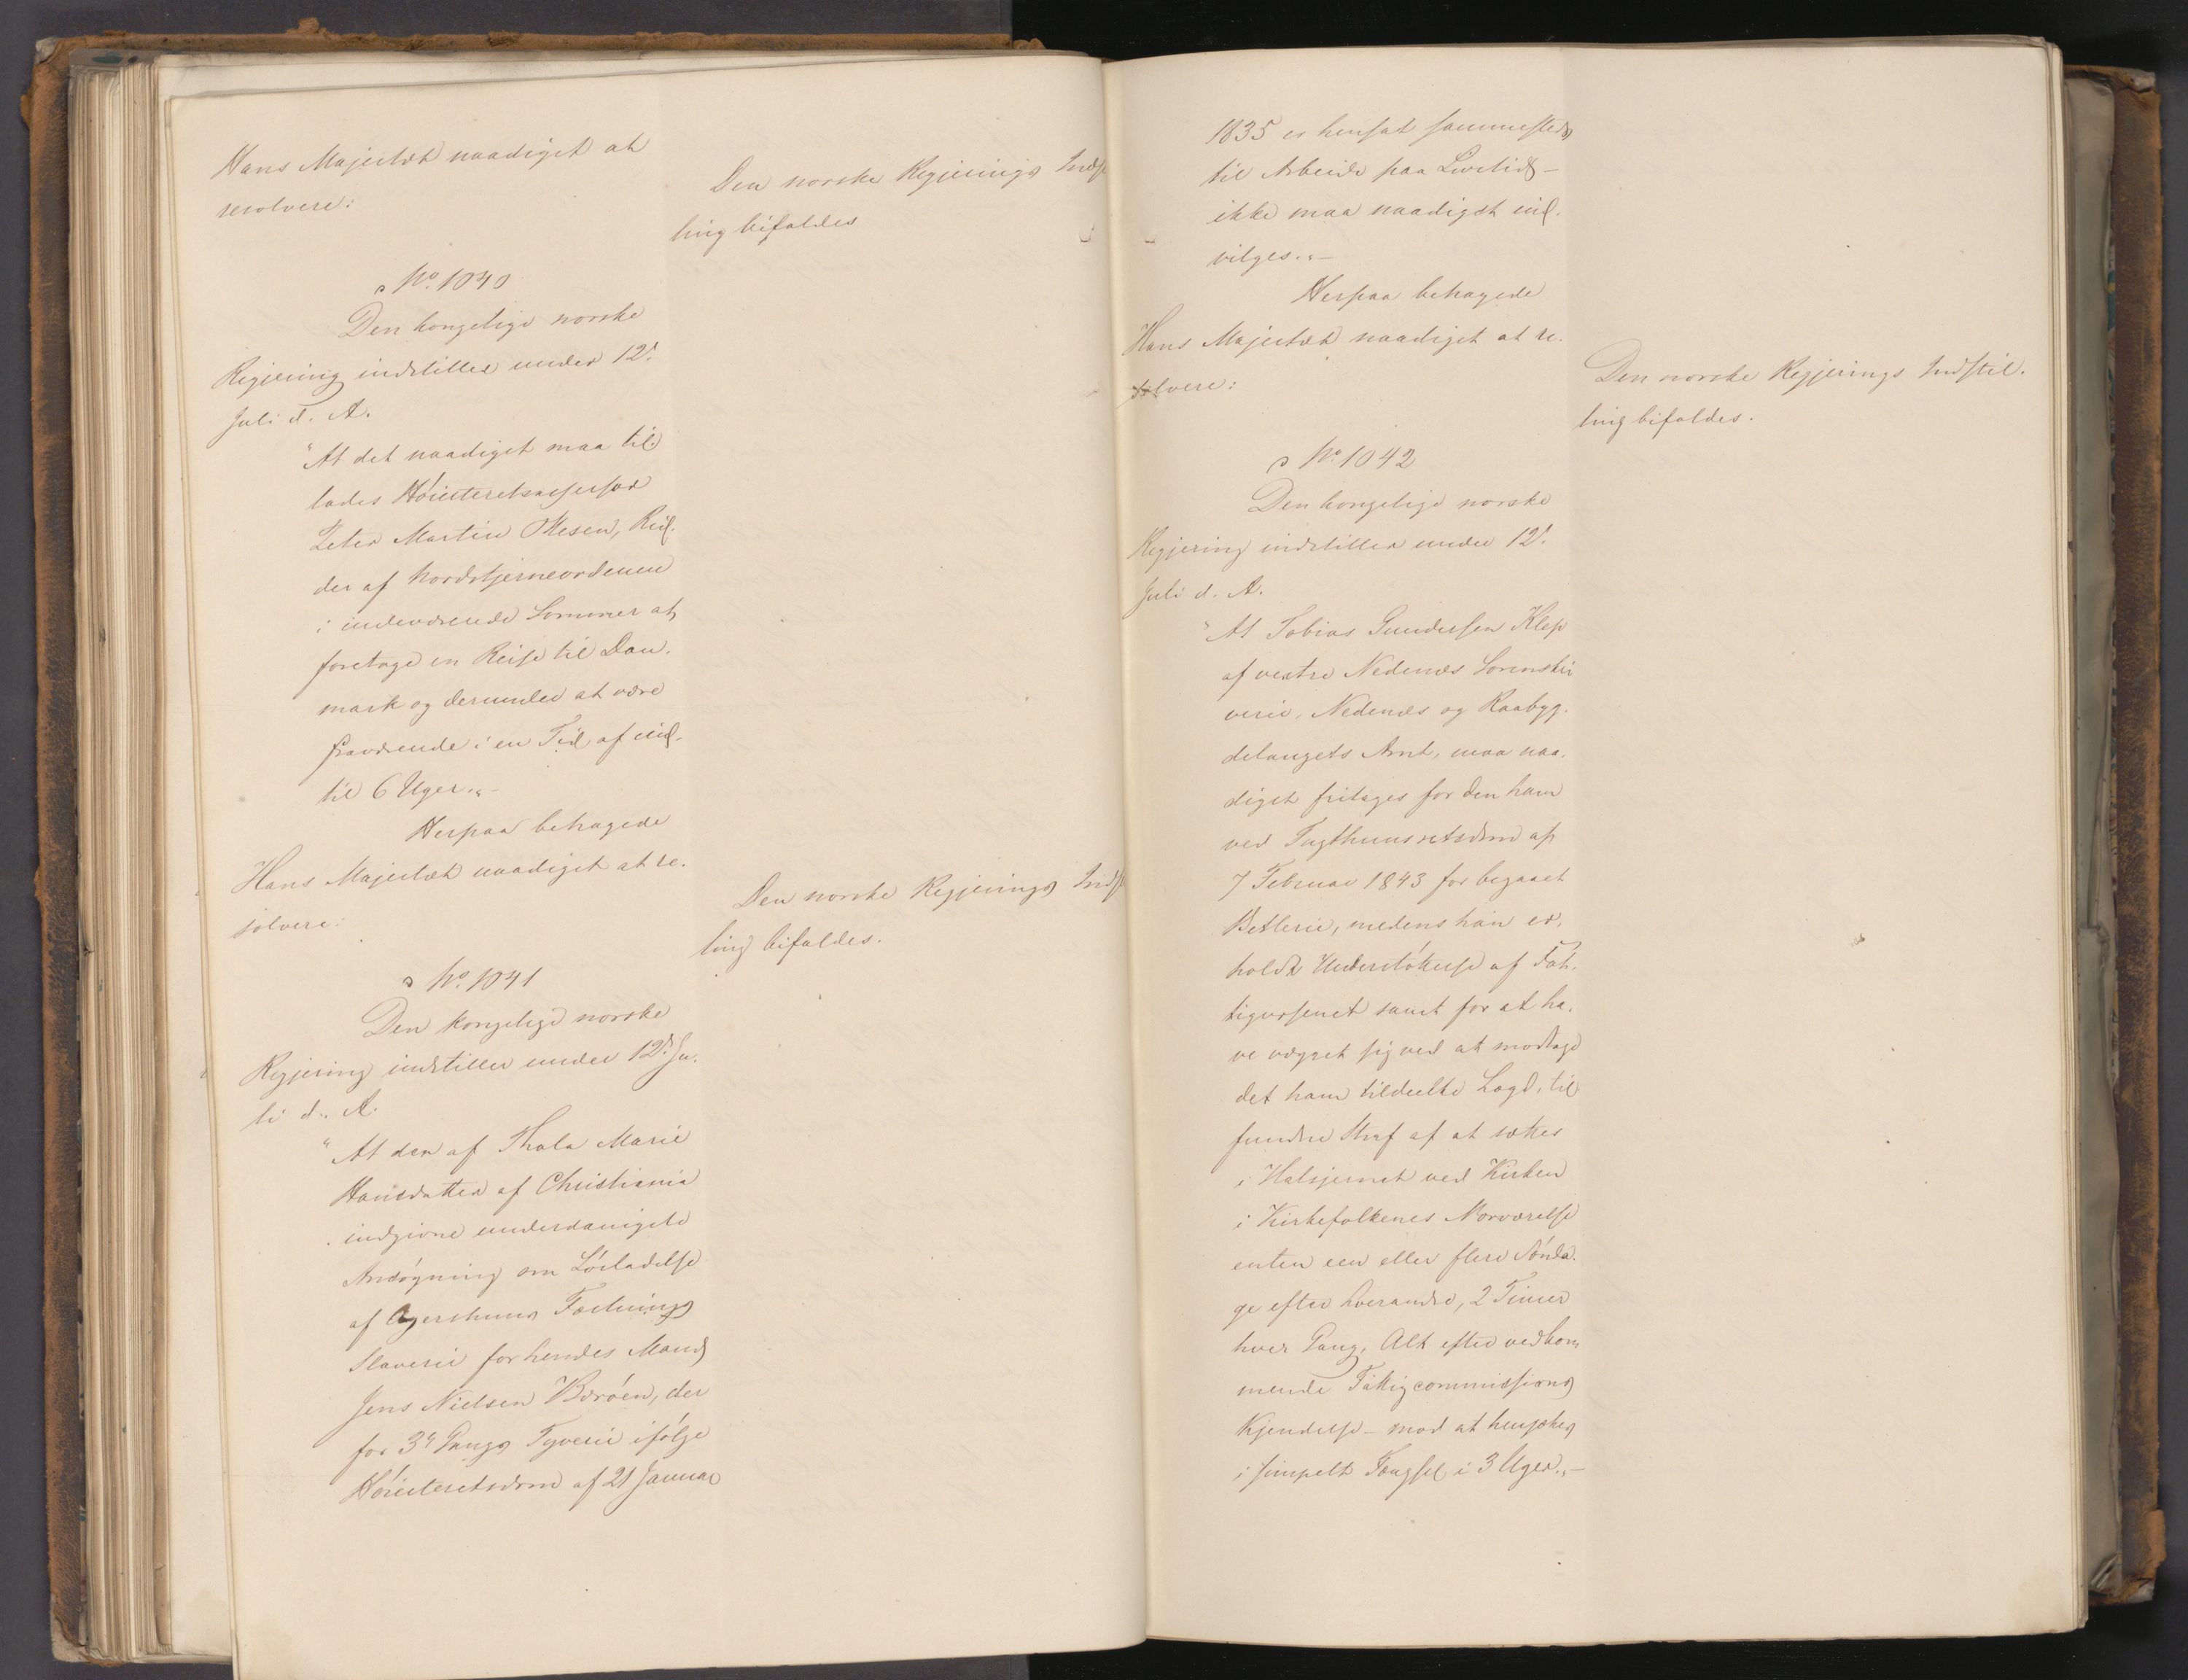 Hans Majestæt naadigst at
resolvere:
Den norske Regjerings Indst
ling bifaldes
No. 1040
Den kongelige norske
Regjering indstiller under 12t
Juli d. A.
"At det naadigst maa til
lades Höiesteretsassessor
Peter Martin Ottesen, Rid-
der af Nordstjerneordenen
i indeværende Sommer at
foretage en Reise til Dan-
mark og derunder at være
fraværende i en Tid af ind-
til 6 Uger."-
Herpaa behagede
Hans Majestæt naadigst at re-
solvere:
Den norske Regjerings Indst
ling bifaldes.
No. 1041
Den kongelige norske
Regjering indstiller under 12t Ju-
li d. A.
"At den af Thala Marie
Hansdatter af Christiania
indgivne underdanigste
Ansögning om Lösladelse
af Agershuus Fæstnings
Slaverie for hendes Mand
Jens Nielsen Boröen, der
for 3die Gangs Tyverie ifölge
Höiesteretsdom af 21 Januar
1835 er hensat sammesteds
til Arbeide paa Livstid -
ikke maa naadigst ind-
vilges."-
Herpaa behagede
Hans Majestæt naadigst at re-
solvere:
Den norske Regjerings Indstil-
ling bifaldes.
No. 1042
Den kongelige norske
Regjering indstiller under 12t
Juli d. A.
"At Tobias Gundersen Klep
af vestre Nedenæs Sorenskri
verie, Nedenæs og Raabyg-
delaugets Amt, maa naa-
digst fritages for den ham
ved Tugthuusretsdom af
7 Februar 1843 for begaaet
Betlerie, medens han er-
holdt Understöttelse af Fat-
tigvæsenet samt for at ha-
ve vægret sig ved at modtage
det ham tildeelte Lægd, til
fundne Straf af at sættes
i Halsjernet ved Kirken
i Kirkefolkenes Nærværelse
enten een eller flere Sönda-
ge efter hverandre, 2 Timer
hver Gang, Alt efter vedkom
mende Fattigcommissions
Kjendelse - mod at hensættes
i simpelt Fængsel i 3 Uger."-